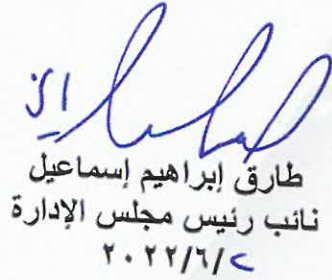 طارق إبراهيم إسماعيل
نائب رئيس مجلس الإدارة
٢٠٢٢/٦/٢